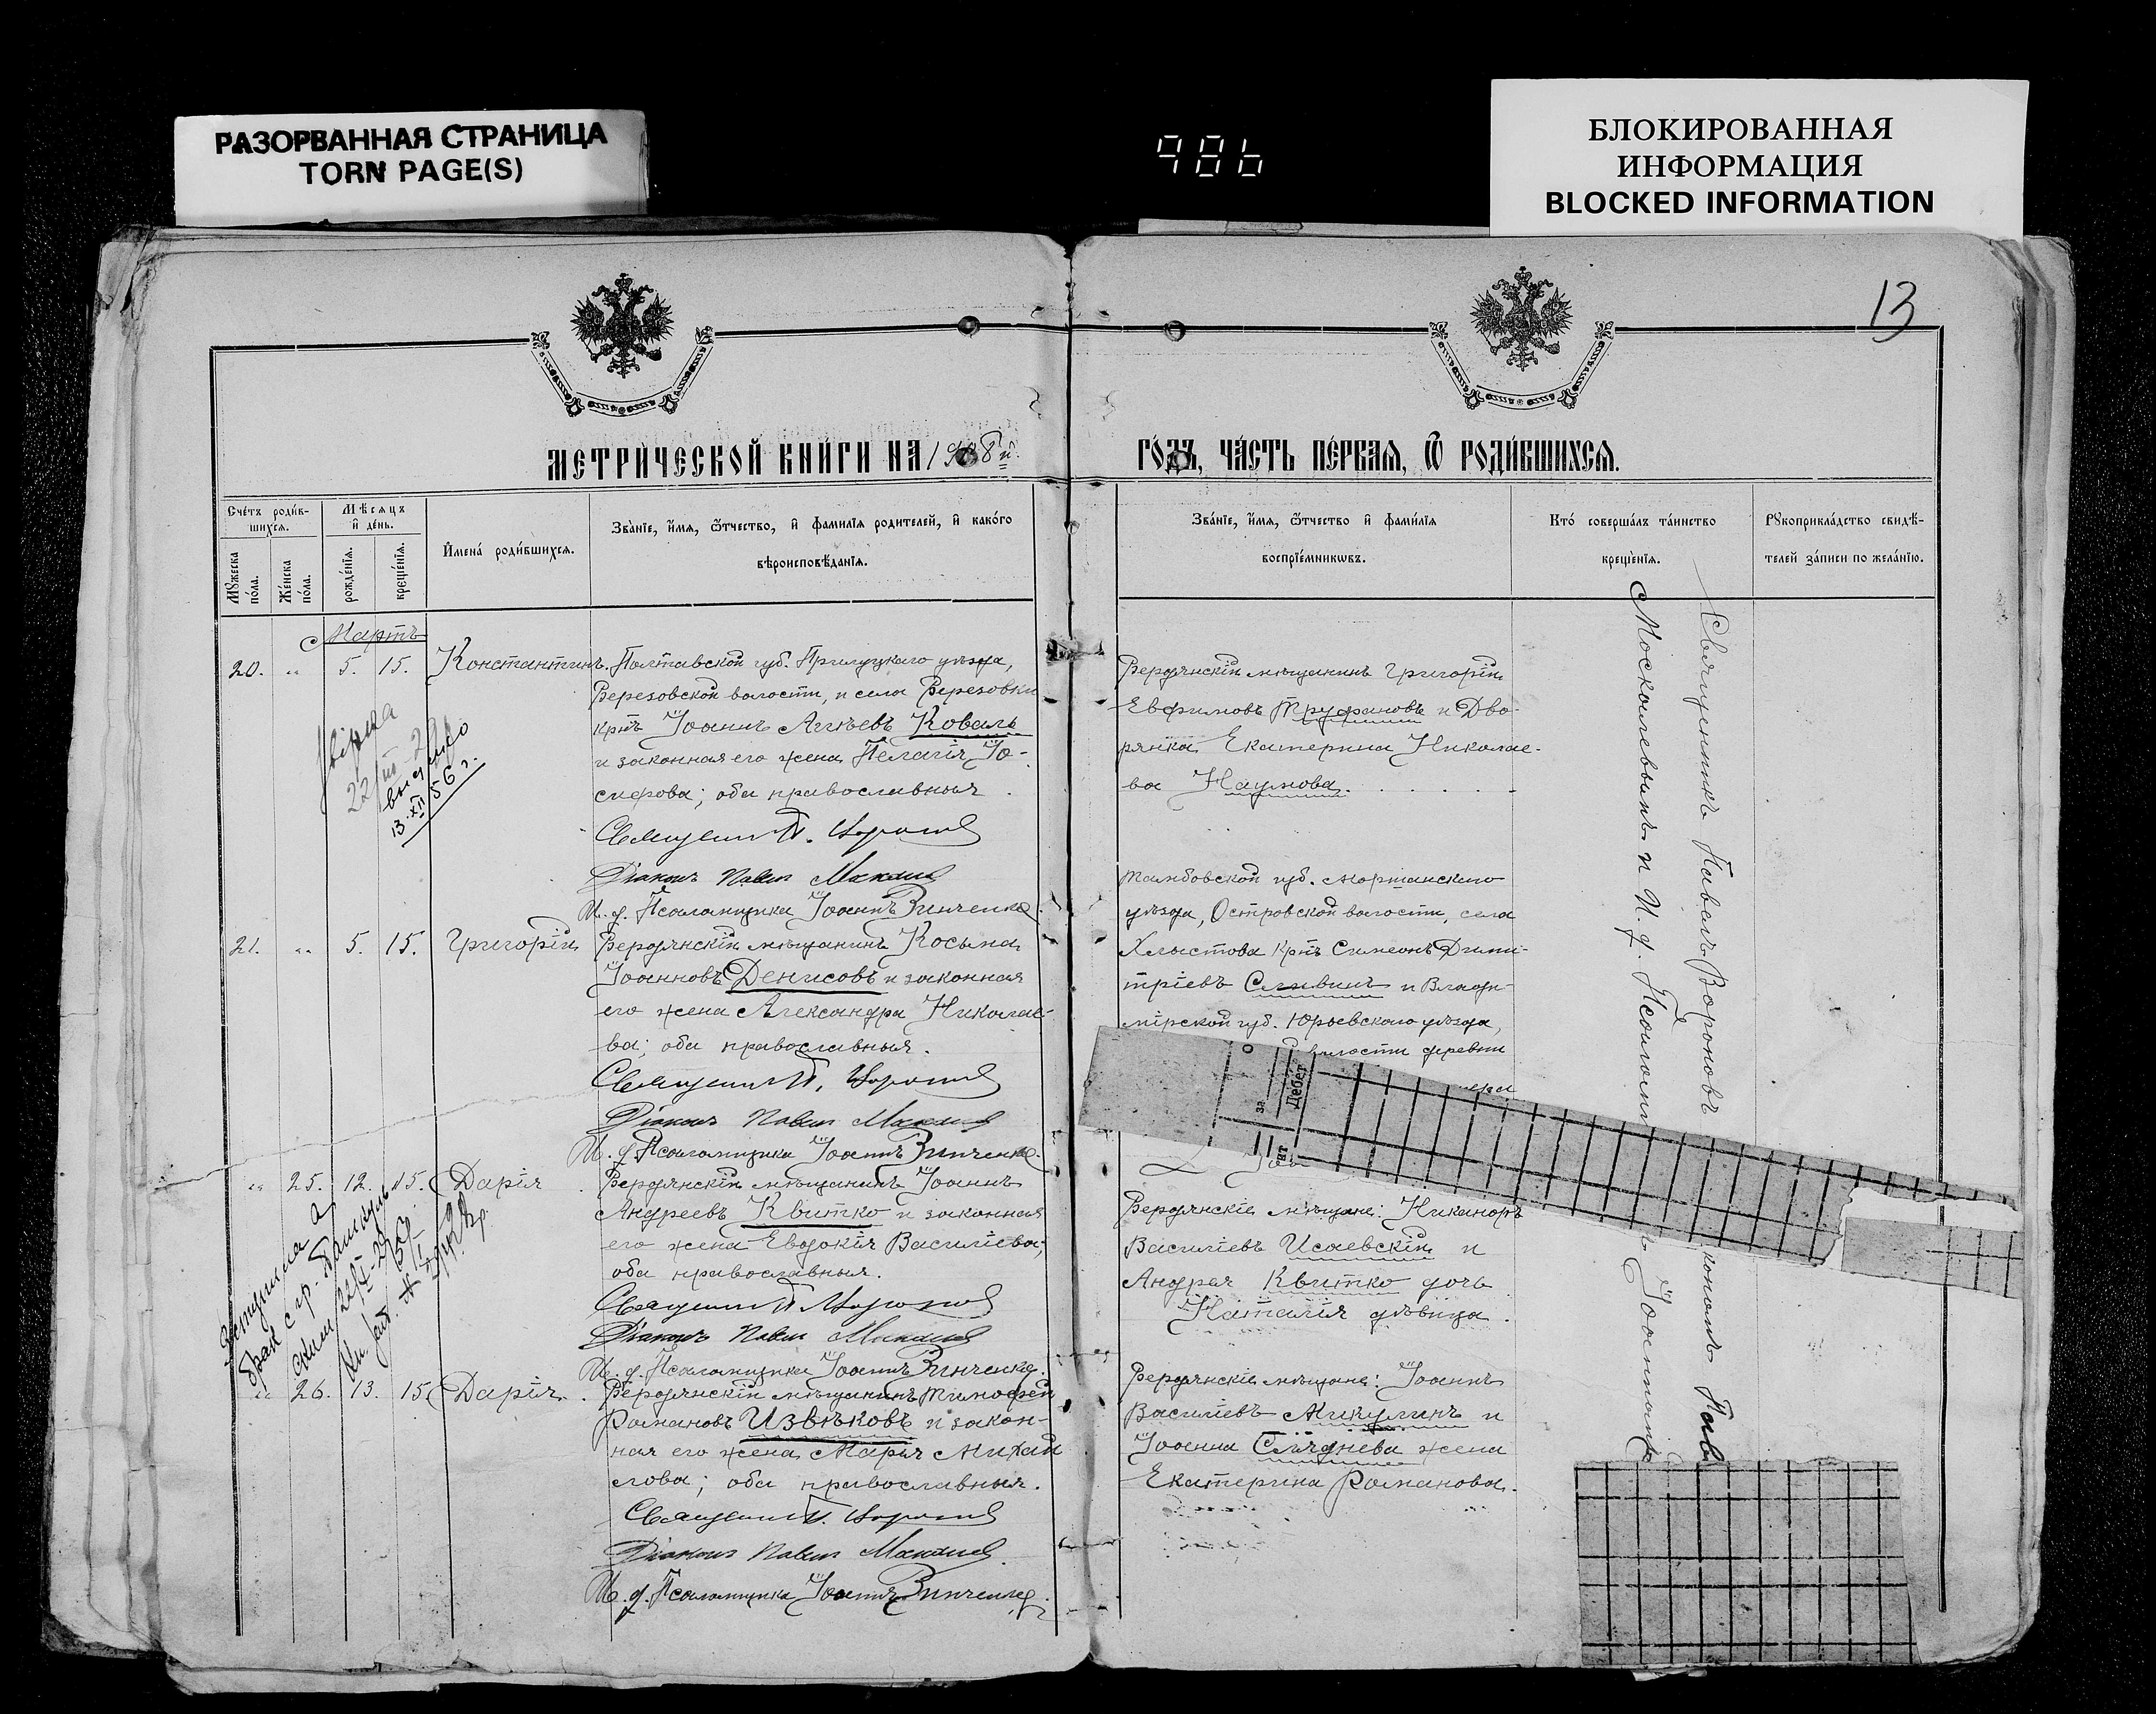 РАЗОРВАННАЯ СТРАНИЦА
TORN PAGE(S)
986
БЛОКИРОВАННАЯ
ИНФОРМАЦИЯ
BLOCKED INFORMATION
13
МЕТРИ́ЧЕСКОЙ КНИ́ГИ НА 1908й
ГО́ДЪ, ЧА́СТЬ ПЕ́РВАЯ, Ѽ РОДИ́ВШИХСЯ.
Сче́тъ роди́в-
шихся.
Мꙋ́жеска по́ла.
Же́нска по́ла.
Мѣ́сяцъ
и҆ де́нь.
рожде́нїя.
креще́нїя.
И҆мена́ роди́вшихся.
Зва́нїе, и҆́мя, ѻ҆́тчество, и҆ фами́лїя роди́телей, и҆ како́го
вѣроисповѣ́данїя.
Зва́нїе, и҆́мя, ѻ҆́тчество и҆ фами́лїя
воспрїе́мниковъ.
Кто̀ соверша́лъ та́инство
креще́нїя.
Рꙋкоприкла́дство свидѣ́-
телей за́писи по жела́нїю.
Мартъ
20. " 5. 15. Константинъ.
Полтавской губ. Прилуцкаго уѣзда,
Березовской волости, и села Березовки
крнъ Іоаннъ Аггѣевъ Коваль
и законная его жена Пелагія Іо-
сифова; оба православныя.
Священникъ П. Вороновъ
Діаконъ Павелъ
И. д. Псаломщика Іоаннъ Зинченко.
Бердянскій мѣщанинъ Григорій
Евфимовъ Труфановъ и Дво-
рянка Екатерина Николае-
ва Наумова.
выдано
13.XII 56 г.
21. " 5. 15. Григорій
Бердянскій мѣщанинъ Косьма
Іоанновъ Денисовъ и законная
его жена Александра Николае-
ва; оба православныя.
Священникъ П. Вороновъ
Діаконъ Павелъ
И. д. Псаломщика Іоаннъ Зинченко.
Тамбовской губ. Моршанскаго
уѣзда, Островской волости, села
Хлыстова крнъ Симеонъ Дими-
тріевъ Сливинъ и Влади-
мірской губ. Юрьевскаго уѣзда,
волости деревни
Дебет
за
" 25. 12. 15. Дарія
Бердянскій мѣщанинъ Іоаннъ
Андреевъ Квитко и законная
его жена Евдокія Василіева;
оба православныя.
Священникъ П. Вороновъ
Діаконъ Павелъ
И. д. Псаломщика Іоаннъ Зинченко.
Бердянскіе мѣщане: Никаноръ
Василіевъ Исаевскій и
Андрея Квитко дочь
Наталія дѣвица.
Вступила в
брак с гр.
" 26. 13. 15. Дарія.
Бердянскій мѣщанинъ Тимофей
Романовъ Извѣковъ и закон-
ная его жена Марія Михай
лова; оба православныя.
Священникъ П. Вороновъ
Діаконъ Павелъ
И. д. Псаломщика Іоаннъ Зинченко.
Бердянскіе мѣщане: Іоаннъ
Василіевъ Микулинъ и
Іоанна Сляднева жена
Екатерина Романова.
Священникъ Павелъ Вороновъ
И. д. Псаломщ
Іоанномъ